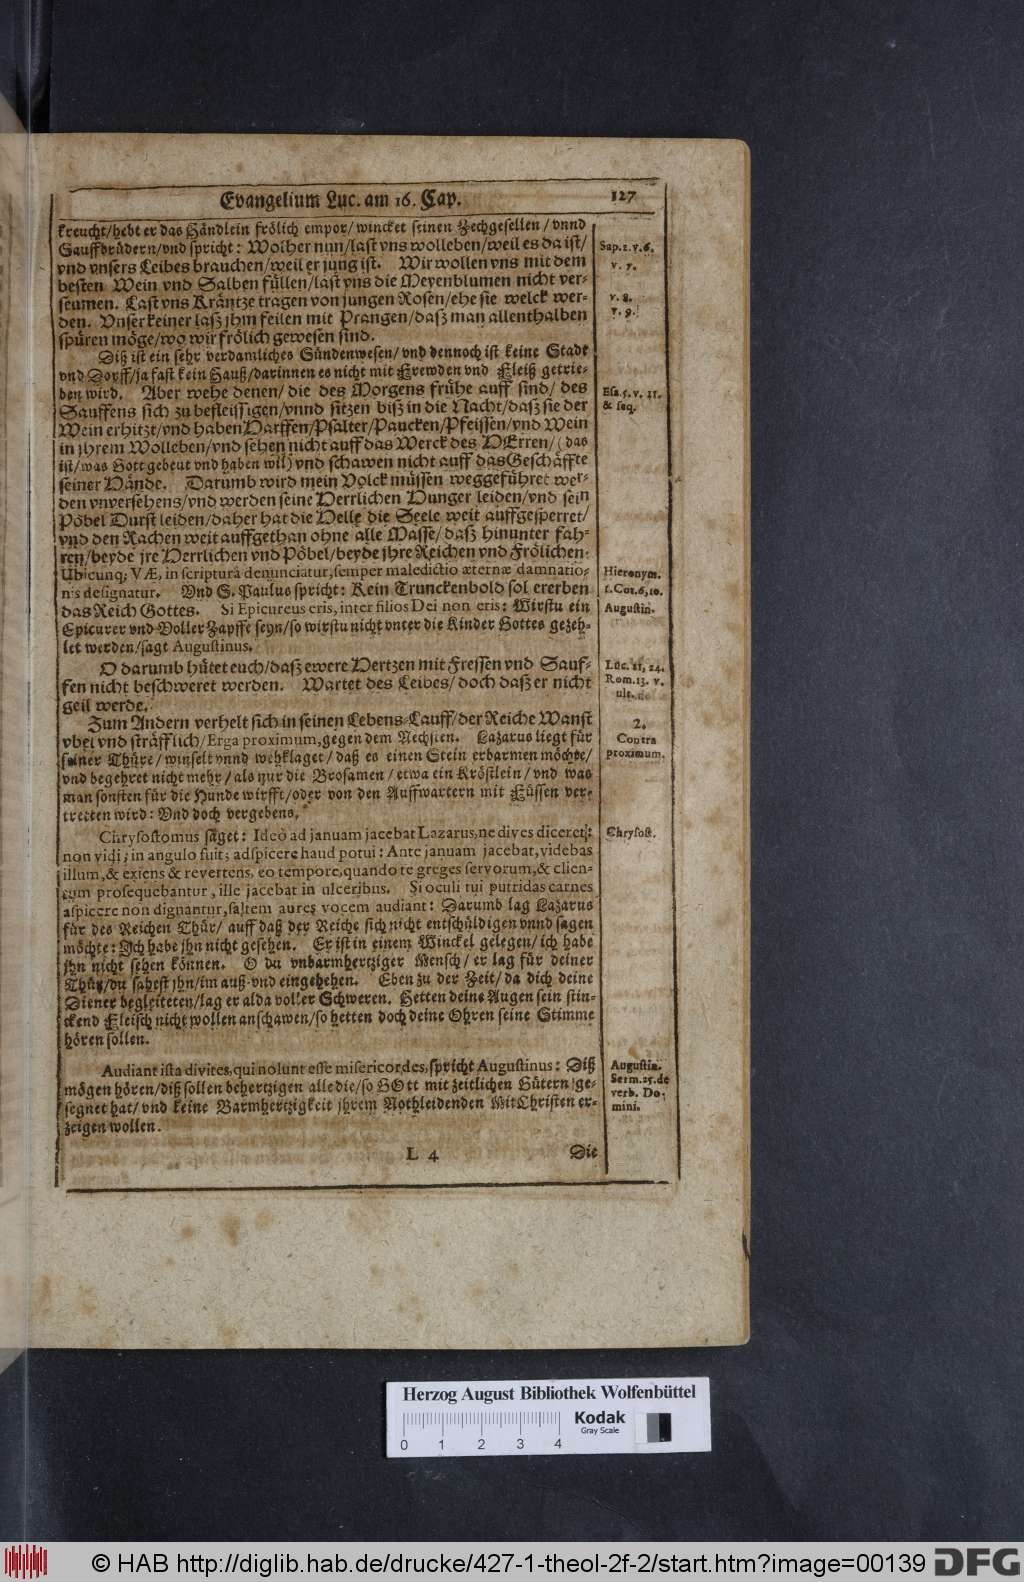 Evangelium Luc. am 16. Cap. 127
kreucht/hebt er das Händlein frölich empor/wincket seinen Zechgesellen/vnnd
Sauffbrüdern/vnd spricht: Wolher nun/last vns wolleben/weil es da ist/
vnd vnsers Leibes brauchen/weil er jung ist. Wir wollen vns mit dem
besten Wein vnd Salben füllen/last vns die Meyenblumen nicht ver-
seumen. Last vns Kräntze tragen von jungen Rosen/ehe sie welck wer-
den. Vnser keiner laß jhm feilen mit Prangen/daß man allenthalben
spüren möge/wo wir frölich gewesen sind.
Sap. 2. v. 6.
v. 7.
v. 8.
v. 9.
Diß ist ein sehr verdamliches Sündenwesen/vnd dennoch ist keine Stadt
vnd Dorff/ja fast kein Hauß/darinnen es nicht mit Frewden vnd Fleiß getrie-
ben wird. Aber wehe denen/die des Morgens frühe auff sind/des
Sauffens sich zu befleissigen/vnnd sitzen biß in die Nacht/daß sie der
Wein erhitzt/vnd haben Harffen/Psalter/Paucken/Pfeissen/vnd Wein
in jhrem Wolleben/vnd sehen nicht auff das Werck des HErren/(das
ist/was Gott gebeut vnd haben wil) vnd schawen nicht auff das Geschäffte
seiner Hände. Darumb wird mein Volck müssen weggeführet wer-
den vnversehens/vnd werden seine Herrlichen Hunger leiden/vnd sein
Pöbel Durst leiden/daher hat die Helle die Seele weit auffgesperret/
vnd den Rachen weit auffgethan ohne alle Masse/daß hinunter fah-
ren/beyde jre Herrlichen vnd Pöbel/beyde jhre Reichen vnd Frölichen.
Esa. 5. v. 11.
& seq.
Ubicunq; VÆ, in scripturâ denunciatur, semper maledictio æternæ damnatio-
nis designatur. Vnd S. Paulus spricht: Kein Trunckenbold sol ererben
das Reich Gottes. Si Epicureus eris, inter filios Dei non eris: Wirstu ein
Epicurer vnd Voller Zapffe seyn/so wirstu nicht vnter die Kinder Gottes gezeh-
let werden/sagt Augustinus.
Hieronym.
1. Cor. 6, 10.
Augustin.
O darumb hütet euch/daß ewere Hertzen mit Fressen vnd Sauf-
fen nicht beschweret werden. Wartet des Leibes/doch daß er nicht
geil werde.
Luc. 21, 24.
Rom. 13. v.
ult.
Zum Andern verhelt sich in seinen Lebens-Lauff/der Reiche Wanst
vbel vnd sträfflich/Erga proximum, gegen dem Nechsten. Lazarus liegt für
seiner Thüre/winselt vnnd wehklaget/daß es einen Stein erbarmen möchte/
vnd begehret nicht mehr/als nur die Brosamen/etwa ein Kröstlein/vnd was
man sonsten für die Hunde wirfft/oder von den Auffwartern mit Füssen ver-
tretten wird: Vnd doch vergebens.
2.
Contra
proximum.
Chrysostomus saget: Ideò ad januam jacebat Lazarus, ne dives diceret:
non vidi; in angulo fuit; adspicere haud potui: Ante januam jacebat, videbas
illum, & exiens & revertens, eo tempore, quando te greges servorum, & clien-
tum prosequebantur, ille jacebat in ulceribus. Si oculi tui putridas carnes
aspicere non dignantur, saltem aures vocem audiant: Darumb lag Lazarus
für des Reichen Thür/auff daß der Reiche sich nicht entschüldigen vnnd sagen
möchte: Ich habe jhn nicht gesehen. Er ist in einem Winckel gelegen/ich habe
jhn nicht sehen können. O du vnbarmhertziger Mensch/er lag für deiner
Thür/du sahest jhn/im auß-vnd eingehehen. Eben zu der Zeit/da dich deine
Diener begleiteten/lag er alda voller Schweren. Hetten deine Augen sein stin-
ckend Fleisch nicht wollen anschawen/so hetten doch deine Ohren seine Stimme
hören sollen.
Chrysost.
Audiant ista divites, qui nolunt esse misericordes, spricht Augustinus: Diß
mögen hören/diß sollen behertzigen alle die/so GOtt mit zeitlichen Gütern ge-
segnet hat/vnd keine Barmhertzigkeit jhrem Nothleidenden MitChristen er-
zeigen wollen.
Augustin.
Serm. 25. de
verb. Do-
mini.
L 4 Die
Herzog August Bibliothek Wolfenbüttel
Kodak
Gray Scale
0 1 2 3 4
© HAB http://diglib.hab.de/drucke/427-1-theol-2f-2/start.htm?image=00139 DFG